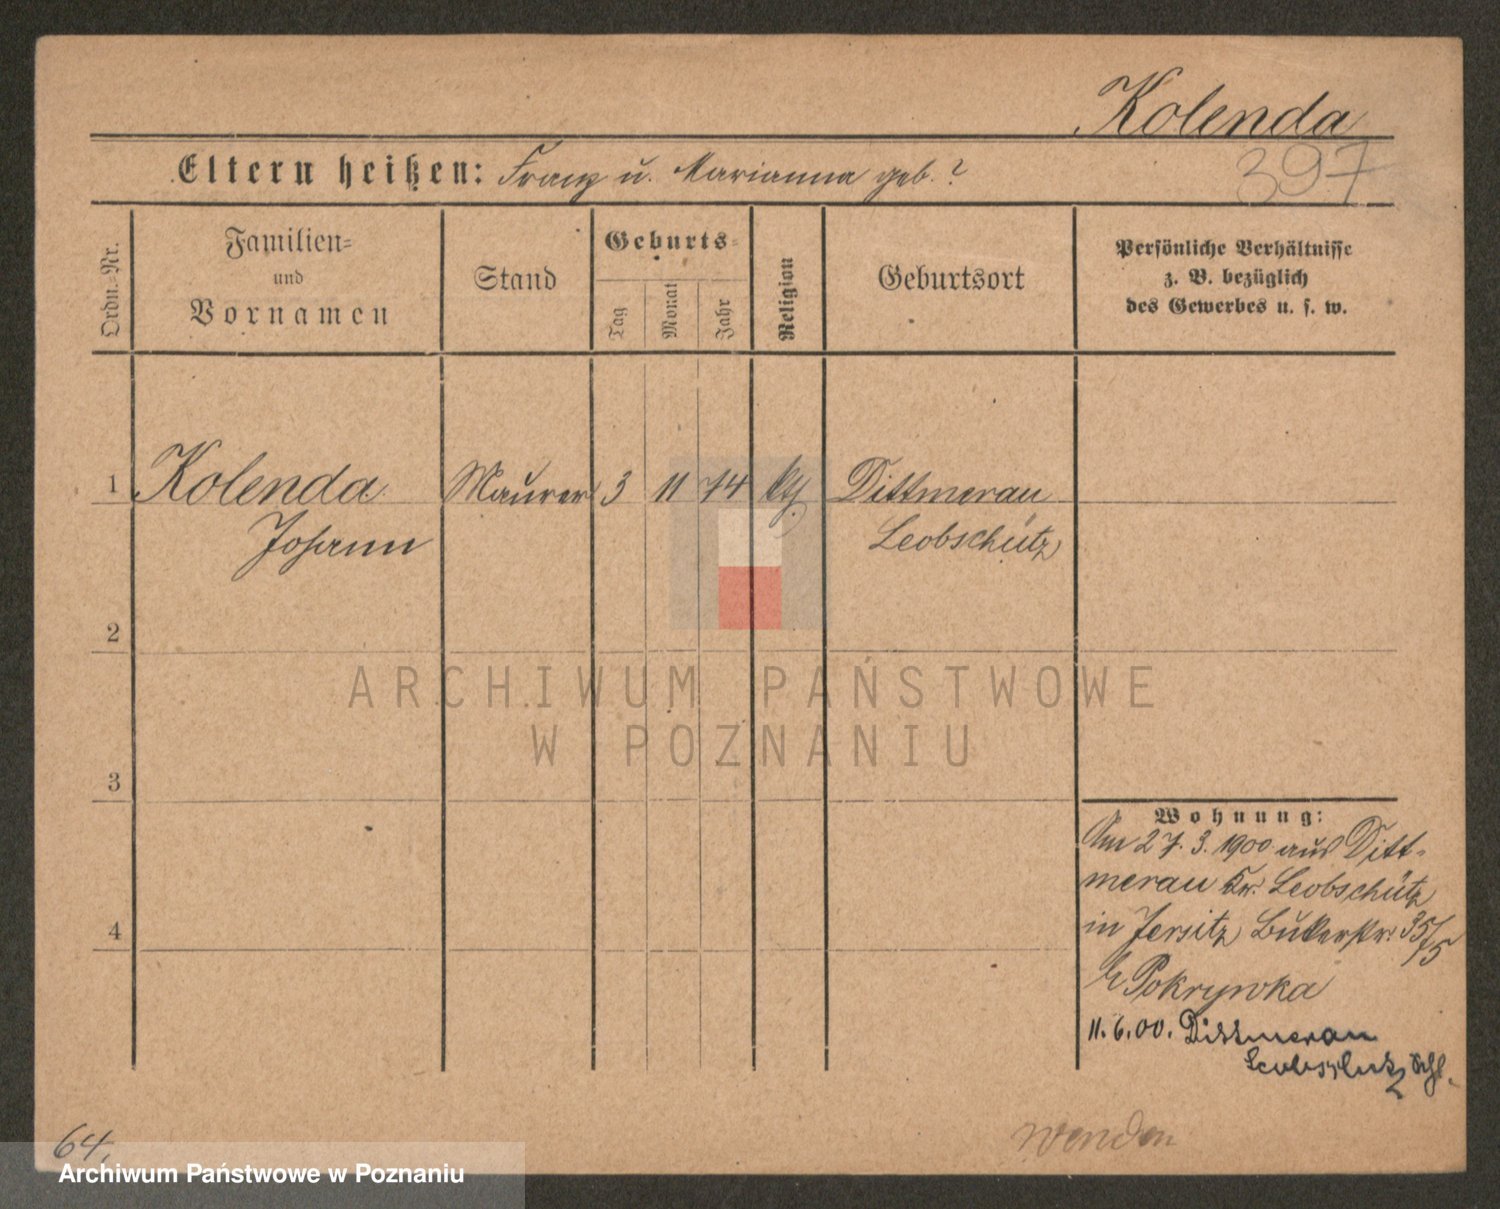 Kolenda
397
Eltern heißen: Franz u. Marianna geb. ?
Ordn.-Nr.
Familien-
und
Vornamen
Stand
Geburts-
Tag
Monat
Jahr
Religion
Geburtsort
Persönliche Verhältnisse
z. B. bezüglich
des Gewerbes u. s. w.
1 Kolenda Maurer 3 11 74 kth Dittmerau
Johann Leobschütz
2
ARCHIWUM PAŃSTWOWE
W POZNANIU
3
Wohnung:
Am 27. 3. 1900 aus Ditt-
merau Kr. Leobschütz
4
in Jersitz Bukerstr. 35/
75
Pokrywka
11. 6. 00. Dittmerau
Leobschütz Schl.
wenden
64.
Archiwum Państwowe w Poznaniu